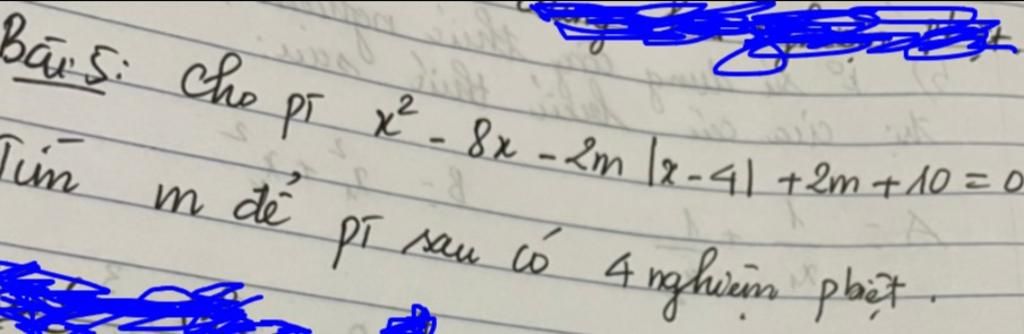 Bài 5: Cho pT x² - 8x - 2m |x-4| + 2m + 10 = 0
Tìm m để pT sau có 4 nghiệm pbiệt.